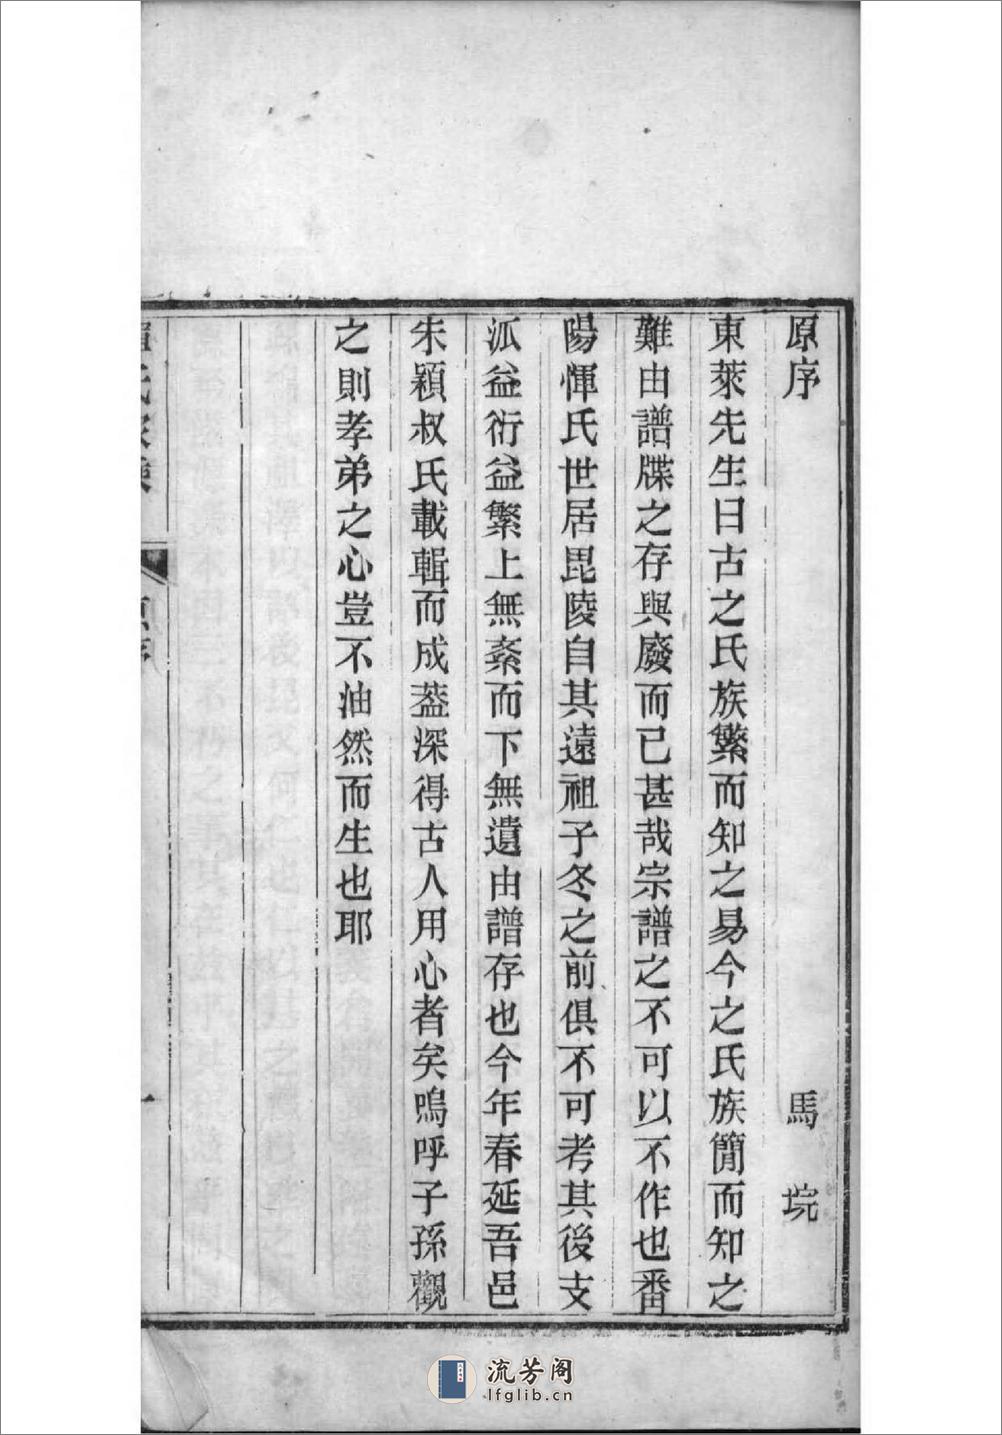 原序
馬垸
東萊先生曰古之氏族繁而知之易今之氏族簡而知之
難由譜牒之存與廢而已甚哉宗譜之不可以不作也番
陽惲氏世居毘陵自其遠祖子冬之前俱不可考其後支
泒益衍益繁上無紊而下無遺由譜存也今年春延吾邑
朱穎叔氏載輯而成葢深得古人用心者矣嗚呼子孫觀
之則孝弟之心豈不油然而生也耶
流芳阁
lfglib.cn